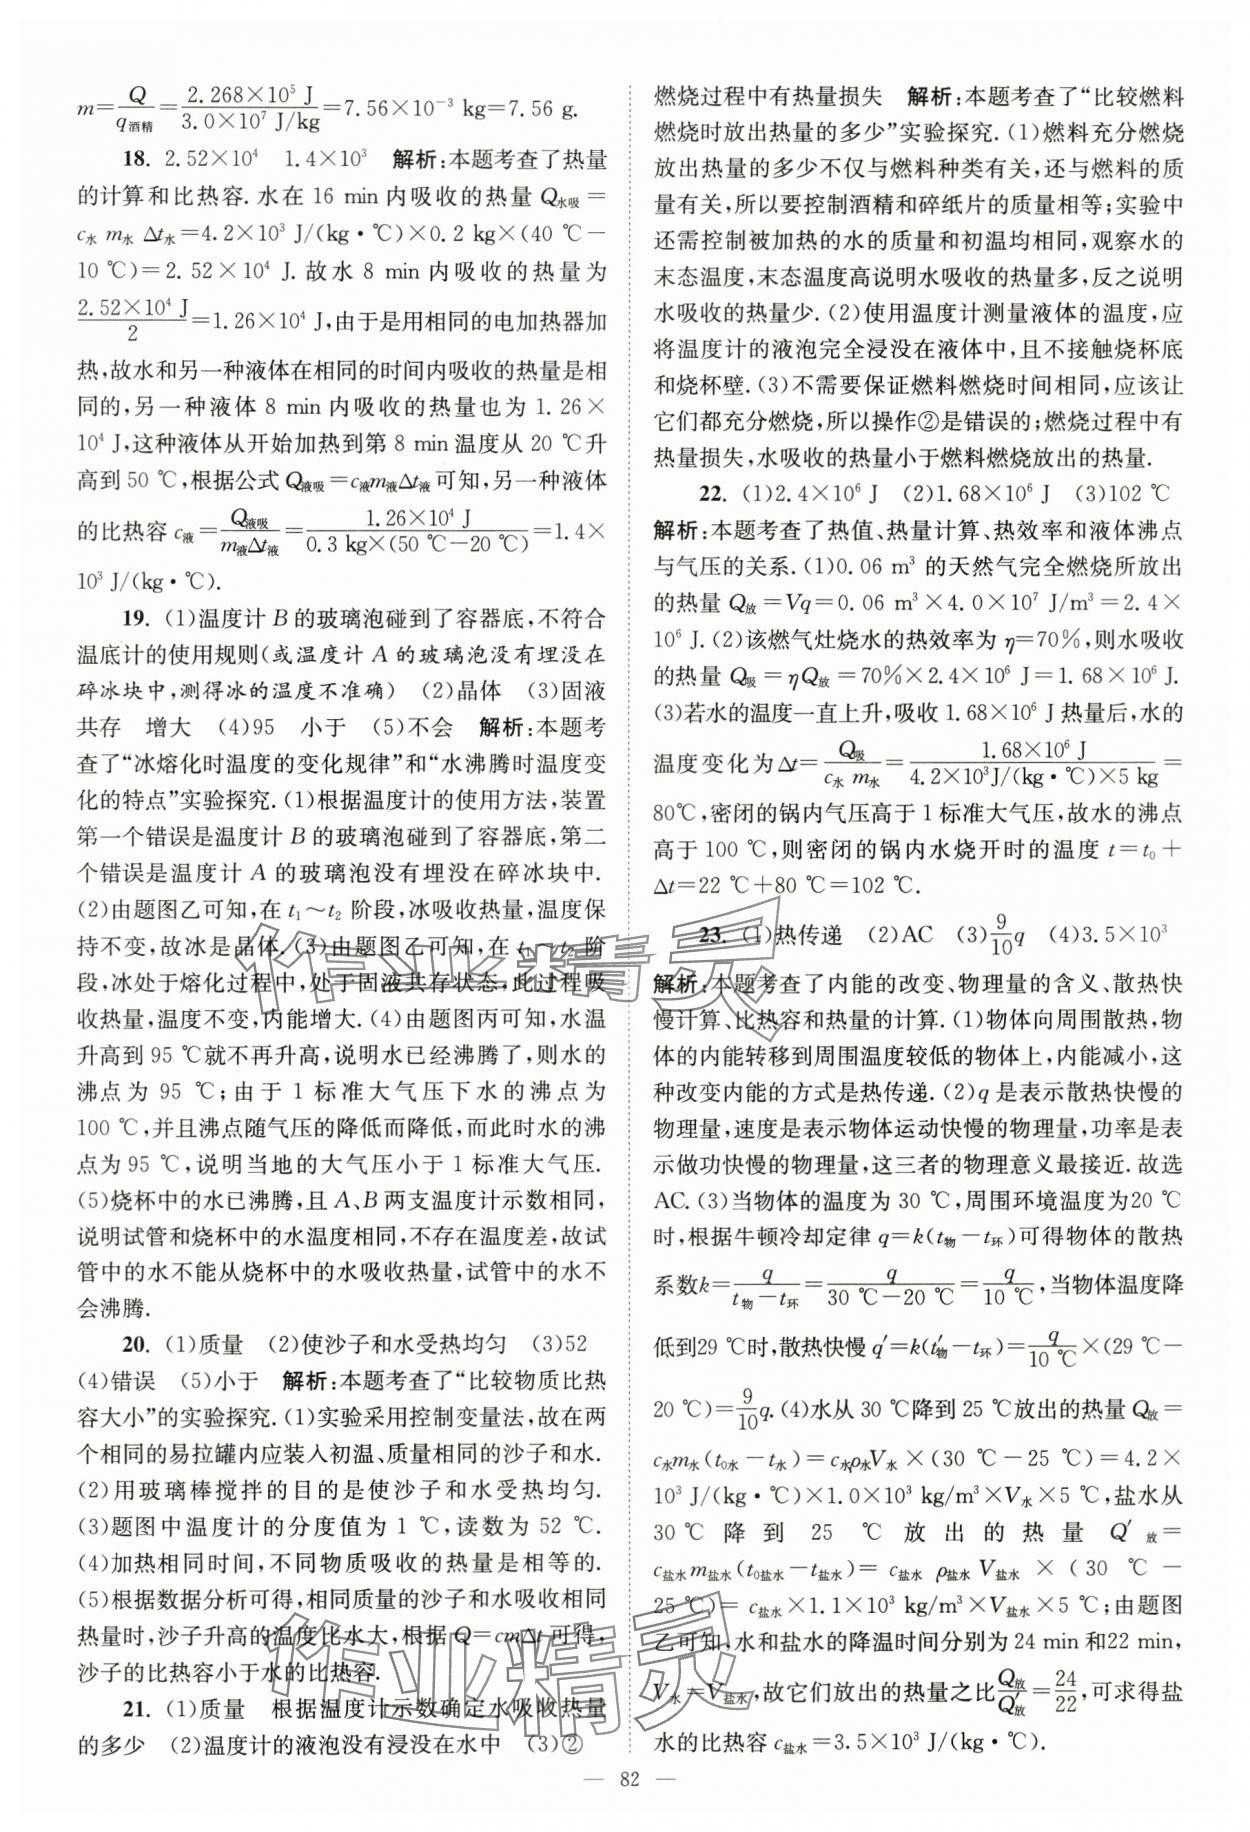 m=Q/q酒精=2.268×10⁵ J/3.0×10⁷ J/kg=7.56×10⁻³ kg=7.56 g.
18. 2.52×10⁴　1.4×10³　解析:本题考查了热量
的计算和比热容.水在 16 min 内吸收的热量 Q水吸=
c水 m水 Δt水=4.2×10³ J/(kg·℃)×0.2 kg×(40 ℃-
10 ℃)=2.52×10⁴ J.故水 8 min 内吸收的热量为
2.52×10⁴ J/2=1.26×10⁴ J,由于是用相同的电加热器加
热,故水和另一种液体在相同的时间内吸收的热量是相
同的,另一种液体 8 min 内吸收的热量也为 1.26×
10⁴ J,这种液体从开始加热到第 8 min 温度从 20 ℃升
高到 50 ℃,根据公式 Q液吸=c液m液Δt液可知,另一种液体
的比热容 c液=Q液吸/m液Δt液=1.26×10⁴ J/0.3 kg×(50 ℃-20 ℃)=1.4×
10³ J/(kg·℃).
19. (1)温度计 B 的玻璃泡碰到了容器底,不符合
温底计的使用规则(或温度计 A 的玻璃泡没有埋没在
碎冰块中,测得冰的温度不准确)　(2)晶体　(3)固液
共存　增大　(4)95　小于　(5)不会　解析:本题考
查了“冰熔化时温度的变化规律”和“水沸腾时温度变
化的特点”实验探究.(1)根据温度计的使用方法,装置
第一个错误是温度计 B 的玻璃泡碰到了容器底,第二
个错误是温度计 A 的玻璃泡没有埋没在碎冰块中.
(2)由题图乙可知,在 t₁～t₂ 阶段,冰吸收热量,温度保
持不变,故冰是晶体.(3)由题图乙可知,在 t₁～t₂ 阶
段,冰处于熔化过程中,处于固液共存状态,此过程吸
收热量,温度不变,内能增大.(4)由题图丙可知,水温
升高到 95 ℃就不再升高,说明水已经沸腾了,则水的
沸点为 95 ℃;由于 1 标准大气压下水的沸点为
100 ℃,并且沸点随气压的降低而降低,而此时水的沸
点为 95 ℃,说明当地的大气压小于 1 标准大气压.
(5)烧杯中的水已沸腾,且 A、B 两支温度计示数相同,
说明试管和烧杯中的水温度相同,不存在温度差,故试
管中的水不能从烧杯中的水吸收热量,试管中的水不
会沸腾.
20. (1)质量　(2)使沙子和水受热均匀　(3)52
(4)错误　(5)小于　解析:本题考查了“比较物质比热
容大小”的实验探究.(1)实验采用控制变量法,故在两
个相同的易拉罐内应装入初温、质量相同的沙子和水.
(2)用玻璃棒搅拌的目的是使沙子和水受热均匀.
(3)题图中温度计的分度值为 1 ℃,读数为 52 ℃.
(4)加热相同时间,不同物质吸收的热量是相等的.
(5)根据数据分析可得,相同质量的沙子和水吸收相同
热量时,沙子升高的温度比水大,根据 Q=cmΔt 可得,
沙子的比热容小于水的比热容.
21. (1)质量　根据温度计示数确定水吸收热量
的多少　(2)温度计的液泡没有浸没在水中　(3)②
燃烧过程中有热量损失　解析:本题考查了“比较燃料
燃烧时放出热量的多少”实验探究.(1)燃料充分燃烧
放出热量的多少不仅与燃料种类有关,还与燃料的质
量有关,所以要控制酒精和碎纸片的质量相等;实验中
还需控制被加热的水的质量和初温均相同,观察水的
末态温度,末态温度高说明水吸收的热量多,反之说明
水吸收的热量少.(2)使用温度计测量液体的温度,应
将温度计的液泡完全浸没在液体中,且不接触烧杯底
和烧杯壁.(3)不需要保证燃料燃烧时间相同,应该让
它们都充分燃烧,所以操作②是错误的;燃烧过程中有
热量损失,水吸收的热量小于燃料燃烧放出的热量.
22. (1)2.4×10⁶ J　(2)1.68×10⁶ J　(3)102 ℃
解析:本题考查了热值、热量计算、热效率和液体沸点
与气压的关系.(1)0.06 m³ 的天然气完全燃烧所放出
的热量 Q放=Vq=0.06 m³×4.0×10⁷ J/m³=2.4×
10⁶ J.(2)该燃气灶烧水的热效率为 η=70%,则水吸收
的热量 Q吸=ηQ放=70%×2.4×10⁶ J=1.68×10⁶ J.
(3)若水的温度一直上升,吸收 1.68×10⁶ J 热量后,水的
温度变化为 Δt=Q吸/c水 m水=1.68×10⁶ J/4.2×10³J/(kg·℃)×5 kg=
80℃,密闭的锅内气压高于 1 标准大气压,故水的沸点
高于 100 ℃,则密闭的锅内水烧开时的温度 t=t₀+
Δt=22 ℃+80 ℃=102 ℃.
23. (1)热传递　(2)AC　(3)9/10q　(4)3.5×10³
解析:本题考查了内能的改变、物理量的含义、散热快
慢计算、比热容和热量的计算.(1)物体向周围散热,物
体的内能转移到周围温度较低的物体上,内能减小,这
种改变内能的方式是热传递.(2)q 是表示散热快慢的
物理量,速度是表示物体运动快慢的物理量,功率是表
示做功快慢的物理量,这三者的物理意义最接近.故选
AC.(3)当物体的温度为 30 ℃,周围环境温度为20 ℃
时,根据牛顿冷却定律 q=k(t物-t环)可得物体的散热
系数k=q/t物-t环=q/30 ℃-20 ℃=q/10 ℃,当物体温度降
低到29 ℃时,散热快慢 q′=k(t′物-t环)=q/10 ℃×(29 ℃-
20 ℃)=9/10q.(4)水从 30 ℃降到 25 ℃放出的热量 Q放=
c水m水(t₀水-t水)=c水ρ水V水×(30 ℃-25 ℃)=4.2×
10³ J/(kg·℃)×1.0×10³ kg/m³×V水×5 ℃,盐水从
30 ℃ 降到 25 ℃ 放出的热量 Q′放=
c盐水m盐水(t₀盐水-t盐水)=c盐水 ρ盐水 V盐水 ×(30 ℃-
25 ℃)=c盐水×1.1×10³ kg/m³×V盐水×5 ℃;由题图
乙可知,水和盐水的降温时间分别为 24 min 和22 min,
V水=V盐水,故它们放出的热量之比Q放/Q′放=24/22,可求得盐
水的比热容 c盐水=3.5×10³ J/(kg·℃).
— 82 —
作业精灵
作业精灵